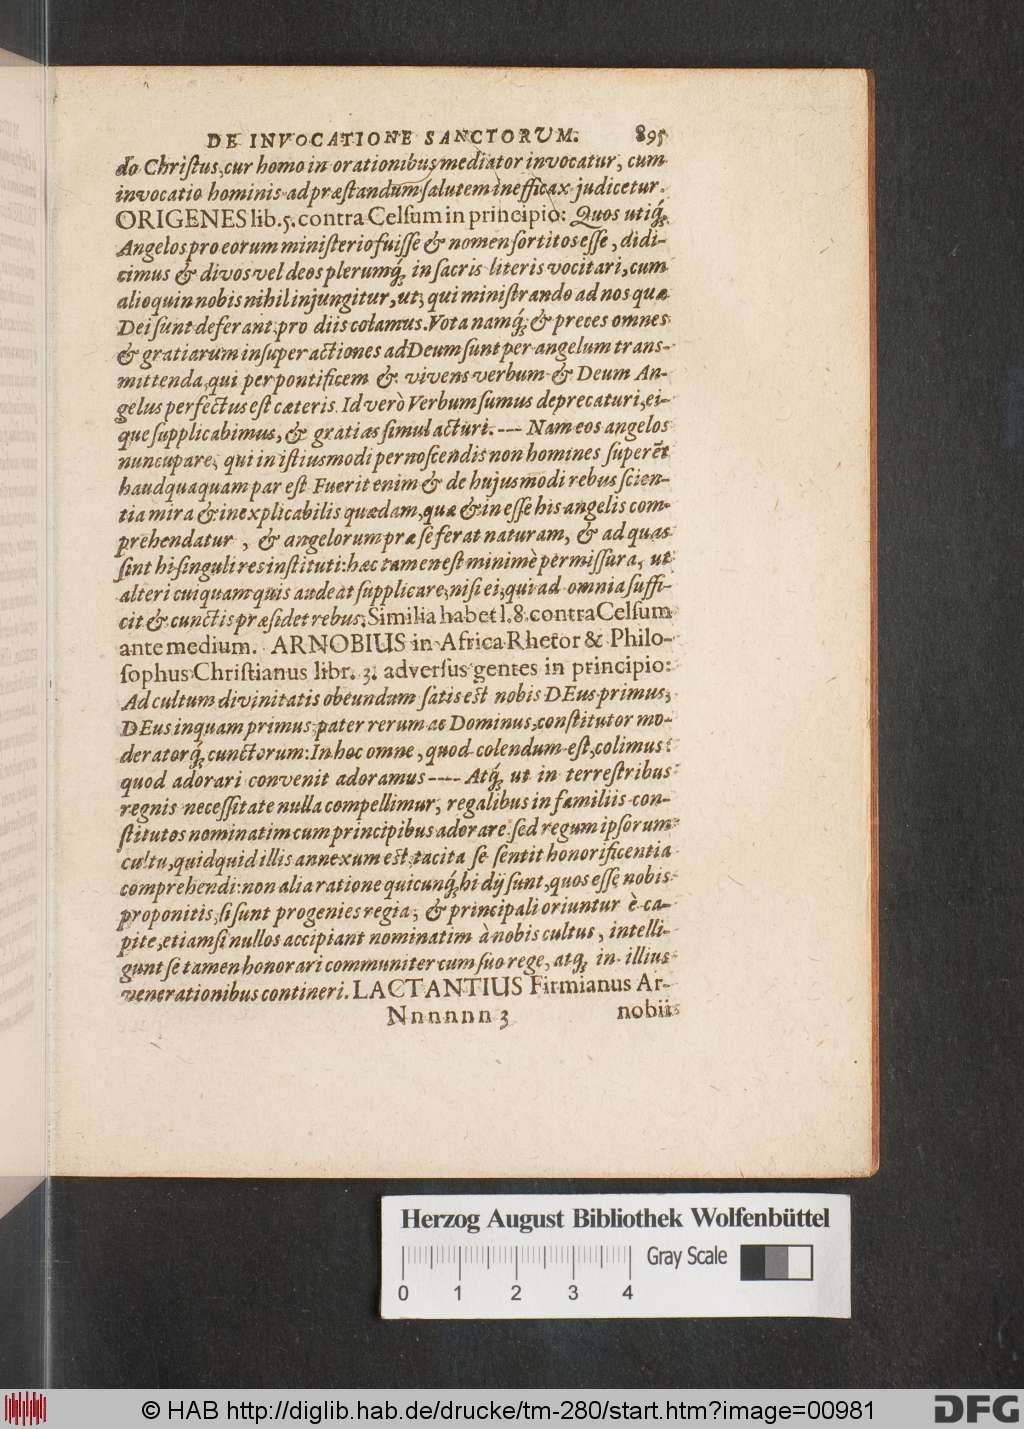 DE INVOCATIONE SANCTORUM. 895
do Christus, cur homo in orationibus mediator invocatur, cum
invocatio hominis ad præstandum salutem inefficax judicetur.
ORIGENES lib. 5. contra Celsum in principio: Quos utiq́;
Angelos pro eorum ministerio fuisse & nomen sortitos esse, didi-
cimus & divos vel deos plerumq́; in sacris literis vocitari, cum
alioquin nobis nihil injungitur, ut, qui ministrando ad nos quæ
Dei sunt deferant, pro diis colamus. Vota namq́; & preces omnes
& gratiarum insuper actiones ad Deum sunt per angelum trans-
mittenda, qui per pontificem & vivens verbum & Deum An-
gelus perfectus est cæteris. Id verò Verbum sumus deprecaturi, ei-
que supplicabimus, & gratias simul acturi. --- Nam eos angelos
nuncupare, qui in istiusmodi pernoscendis non homines superēt
haudquaquam par est Fuerit enim & de hujusmodi rebus scien-
tia mira & inexplicabilis quædam, quæ & in esse his angelis com-
prehendatur, & angelorum præ se ferat naturam, & ad quas
sint hi singuli res instituti: hæc tamen est minimè permissura, ut
alteri cuiquam quis audeat supplicare, nisi ei, qui ad omnia suffi-
cit & cunctis præsidet rebus. Similia habet l. 8. contra Celsum
ante medium. ARNOBIUS in Africa Rhetor & Philo-
sophus Christianus libr. 3. adversus gentes in principio:
Ad cultum divinitatis obeundam satis est nobis DEus primus;
DEus inquam primus, pater rerum ac Dominus, constitutor mo-
deratorq́; cunctorum: In hoc omne, quod colendum est, colimus:
quod adorari convenit adoramus ---- Atq́; ut in terrestribus
regnis necessitate nulla compellimur, regalibus in familiis con-
stitutos nominatim cum principibus adorare: sed regum ipsorum
cultu, quidquid illis annexum est, tacita se sentit honorificentia
comprehendi: non alia ratione quicunq́; hi dij sunt, quos esse nobis
proponitis, si sunt progenies regia, & principali oriuntur è ca-
pite, etiamsi nullos accipiant nominatim à nobis cultus, intelli-
gunt se tamen honorari communiter cum suo rege, atq́; in illius
venerationibus contineri. LACTANTIUS Firmianus Ar-
Nnnnnnn 3 nobii
Herzog August Bibliothek Wolfenbüttel
Gray Scale
0 1 2 3 4
© HAB http://diglib.hab.de/drucke/tm-280/start.htm?image=00981
DFG